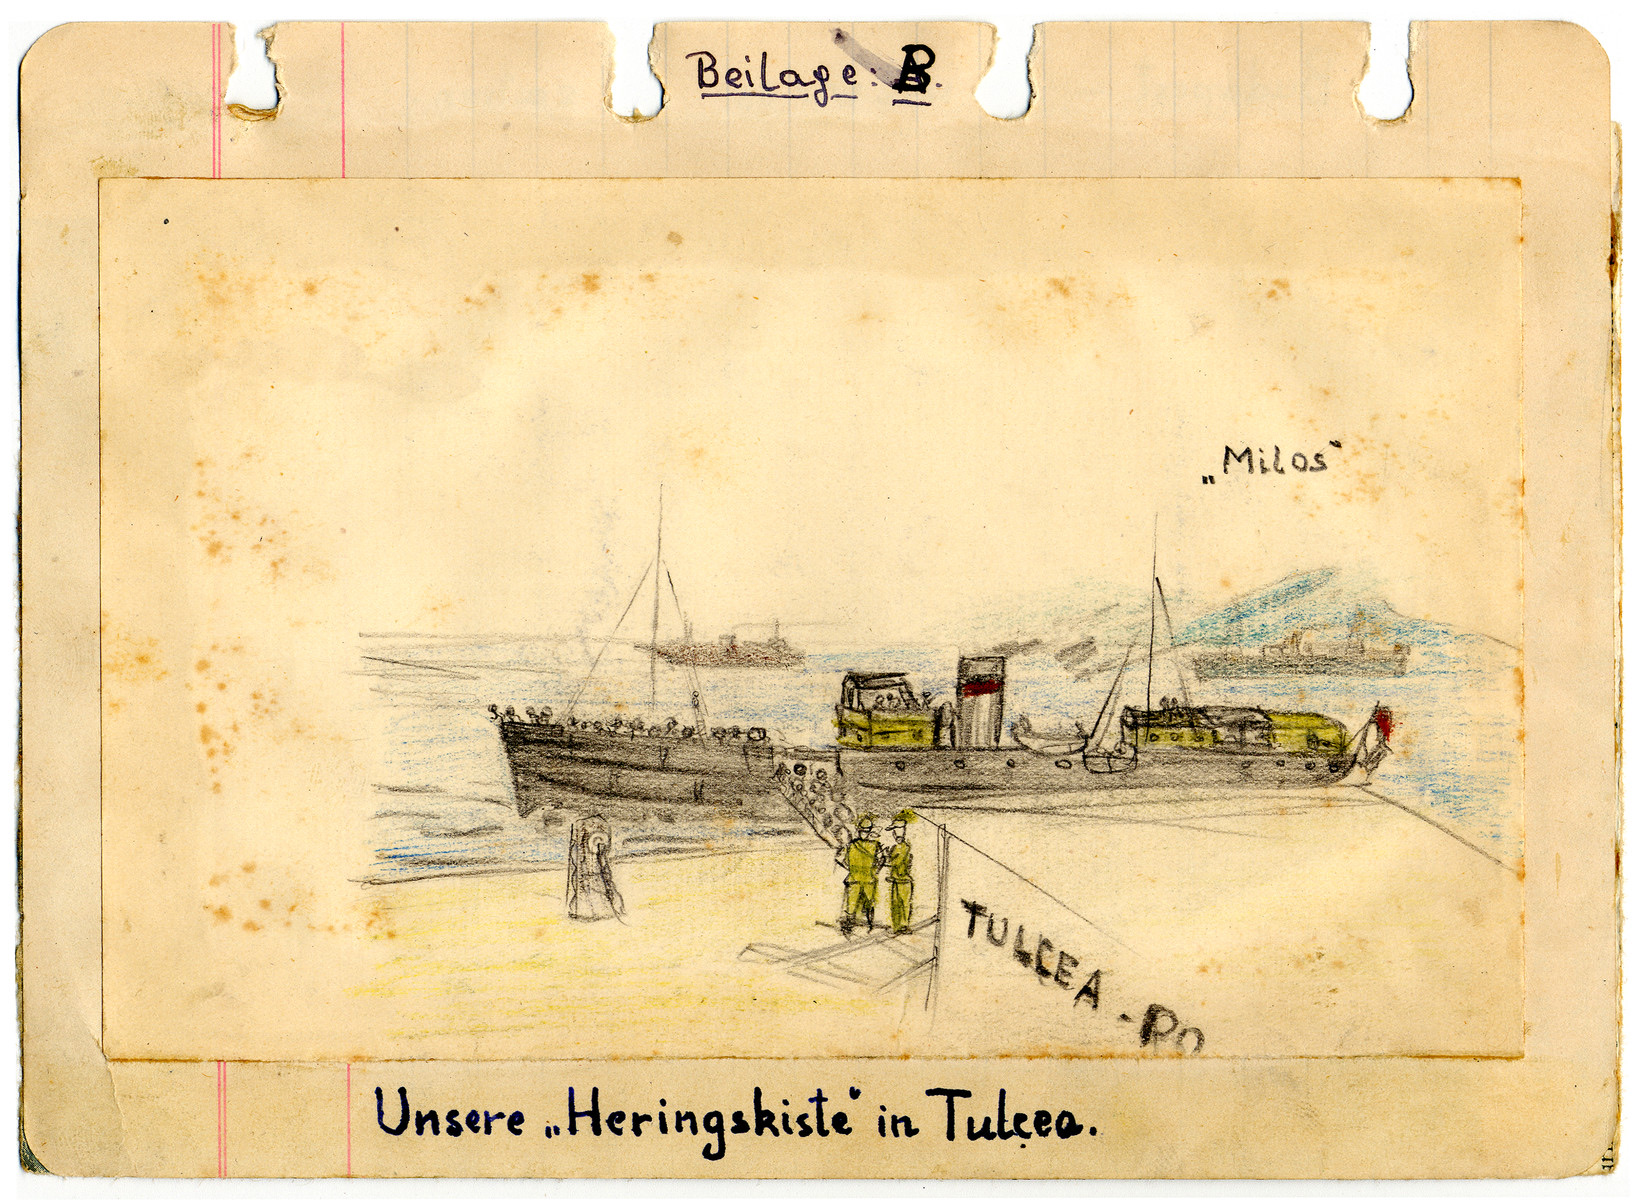 Beilage: B.
„Milos“
TULÇEA - PO
Unsere „Heringskiste“ in Tulçea.